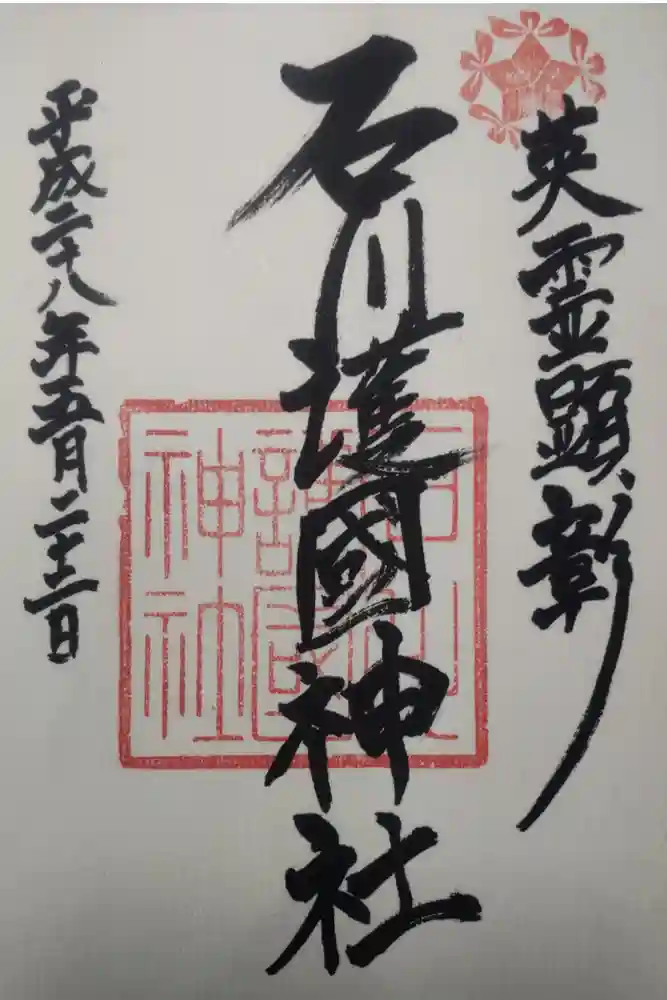 英霊顕彰
石川護國神社
平成二十八年五月二十二日
石川
護國
神社